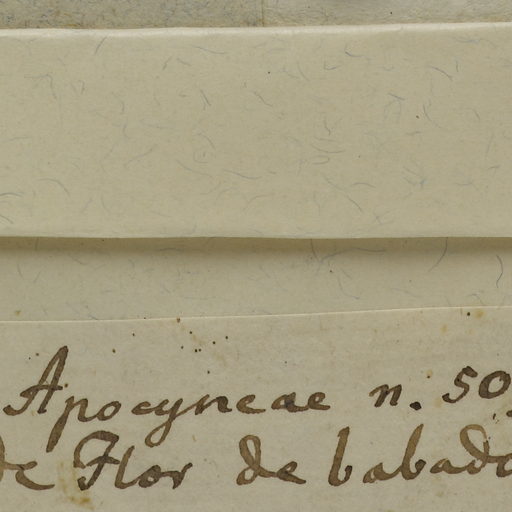 Apocyneae n. 50
de Flor de babado